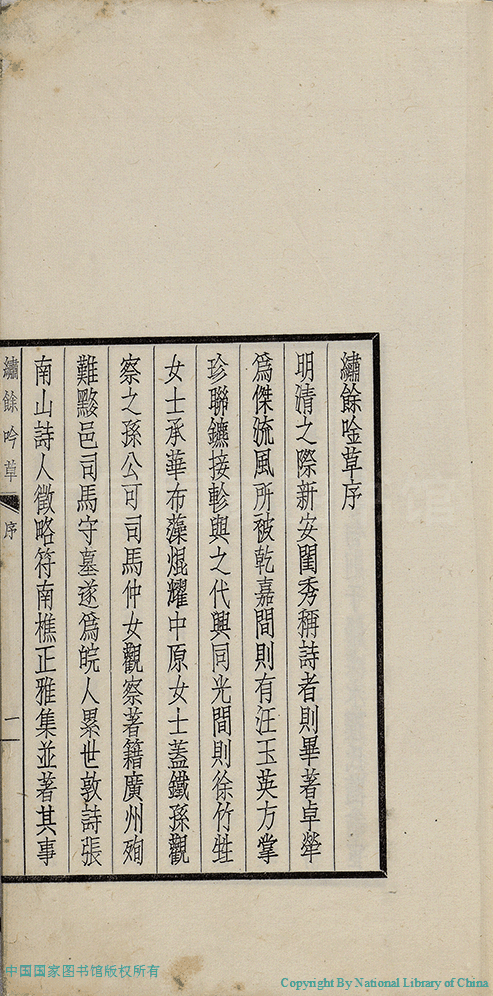 繡餘唫草序
明清之際新安閨秀稱詩者則畢著卓犖
爲傑流風所被乾嘉間則有汪玉英方掌
珍聯鑣接軫與之代興同光間則徐竹甡
女士承華布藻焜耀中原女士蓋鐵孫觀
察之孫公可司馬仲女觀察著籍廣州殉
難黟邑司馬守墓遂爲皖人累世敦詩張
南山詩人徵略符南樵正雅集並著其事
繡餘吟草 序 一
中国国家图书馆版权所有
Copyright By National Library of China